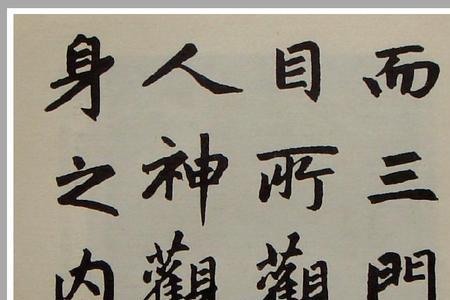 而三門
目所觀
人神觀
身之内